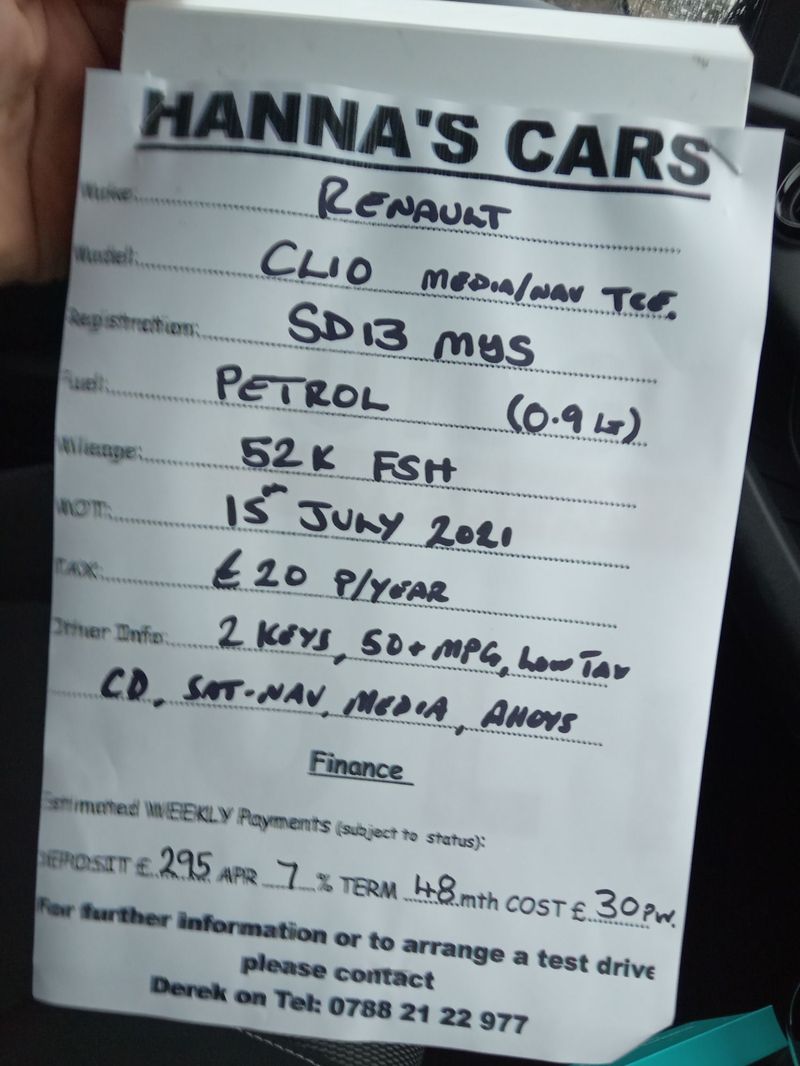 HANNA'S CARS
Make: RENAULT
Model: CLIO MEDIA/NAV TCE.
Registration: SD13 MYS
Fuel: PETROL (0.9 LT)
Mileage: 52K FSH
MOT: 15th JULY 2021
TAX: £20 P/YEAR
Other Info: 2 KEYS, 50+ MPG, LOW TAX
CD, SAT-NAV, MEDIA, ALLOYS
Finance
Estimated WEEKLY Payments (subject to status):
DEPOSIT £ 295 APR 7 % TERM 48 mth COST £ 30 PW.
For further information or to arrange a test drive
please contact
Derek on Tel: 0788 21 22 977